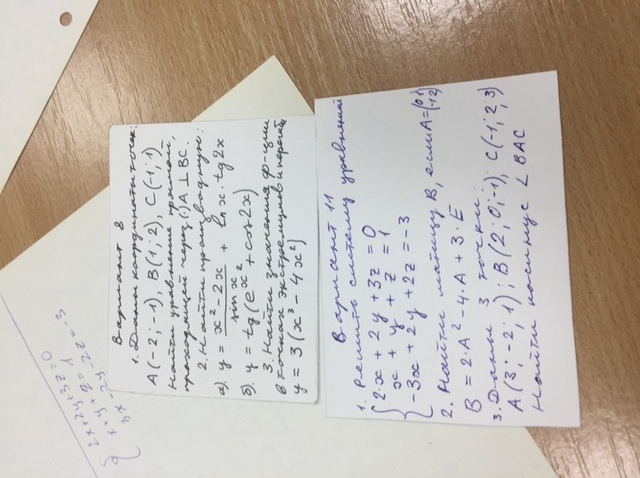 Вариант 8
1. Даны координаты точек:
A(-2;-1), B(1;2), C(-1;1)
Найти уравнение прямой,
проходящей через (·)A, ⊥ BC.
2. Найти производную:
а). y = x² - 2x / sin x² + ln x · tg 2x
б). y = tg(e^x² + cos 2x)
3. Найти значения ф-ции
в точках экстремума и
y = 3(x³ - 4x²)
Вариант 11
1. Решить систему уравнений
{ 2x + 2y + 3z = 0
x + y + z = 1
-3x + 2y + 2z = -3
2. Найти матицу B, если A = (0 1
1 2)
B = 2·A² - 4·A + 3·E
3. Даны 3 точки:
A(3;-2;1); B(2;0;-1), C(-1;2;3)
Найти косинус ∠ BAC
{ 2x + 2y + 3z = 0
x + y + z = 1